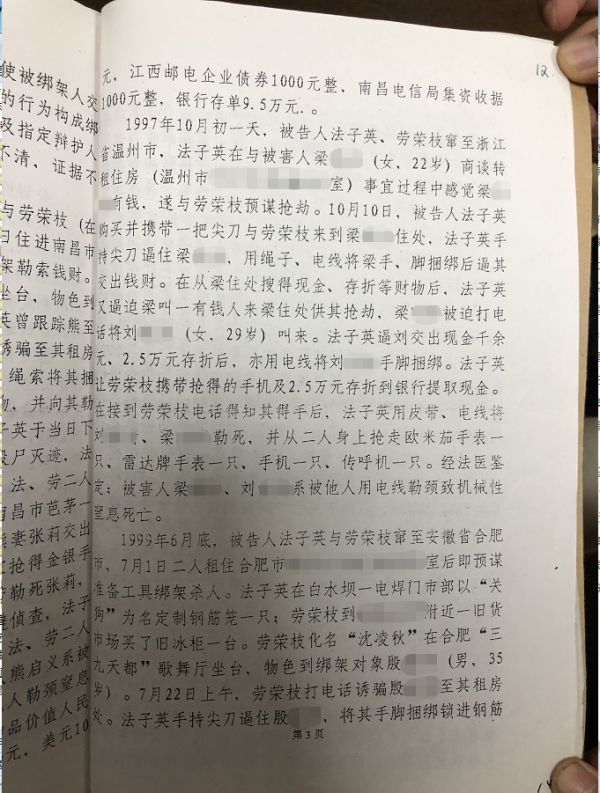 12
元，江西邮电企业债券1000元整，南昌电信局集资收据
1000元整，银行存单9.5万元.。
1997年10月初一天，被告人法子英、劳荣枝窜至浙江
省温州市，法子英在与被害人梁（女，22岁）商谈转
租住房（温州市室）事宜过程中感觉梁
有钱，遂与劳荣枝预谋抢劫。10月10日，被告人法子英
购买并携带一把尖刀与劳荣枝来到梁住处，法子英手
持尖刀逼住梁，用绳子、电线将梁手、脚捆绑后逼其
交出钱财。在从梁住处搜得现金、存折等财物后，法子英
又逼迫梁叫一有钱人来梁住处供其抢劫，梁被迫打电
话将刘（女，29岁）叫来。法子英逼刘交出现金千余
元、2.5万元存折后，亦用电线将刘手脚捆绑。法子英
让劳荣枝携带抢得的手机及2.5万元存折到银行提取现金。
在接到劳荣枝电话得知其得手后，法子英用皮带、电线将
刘、梁勒死，并从二人身上抢走欧米茄手表一
只、雷达牌手表一只、手机一只、传呼机一只。经法医鉴
定：被害人梁、刘系被他人用电线勒颈致机械性
窒息死亡。
1999年6月底，被告人法子英与劳荣枝窜至安徽省合肥
市，7月1日二人租住合肥市室后即预谋
准备工具绑架杀人。法子英在白水坝一电焊门市部以“关
狗”为名定制钢筋笼一只；劳荣枝到附近一旧货
市场买了旧冰柜一台。劳荣枝化名“沈凌秋”在合肥“三
九天都”歌舞厅坐台，物色到绑架对象殷（男，35
岁）。7月22日上午，劳荣枝打电话诱骗殷至其租房
处。法子英手持尖刀逼住殷，将其手脚捆绑锁进钢筋
第3页
使被绑架人交
的行为构成绑
及指定辩护人
不清，证据不
与劳荣枝（在
日住进南昌市
架勒索钱财。
坐台，物色到
英曾跟踪熊至
诱骗至其租房
绳索将其捆
物，并向其勒
子英于当日下
尸灭迹，法
法、劳二人
南昌市芭茅一
妻张莉交出
抢得金银手
勒死张莉，
侦查，法子
法、劳二人
熊启义系被
人勒颈窒息
品价值人民
元，美元10